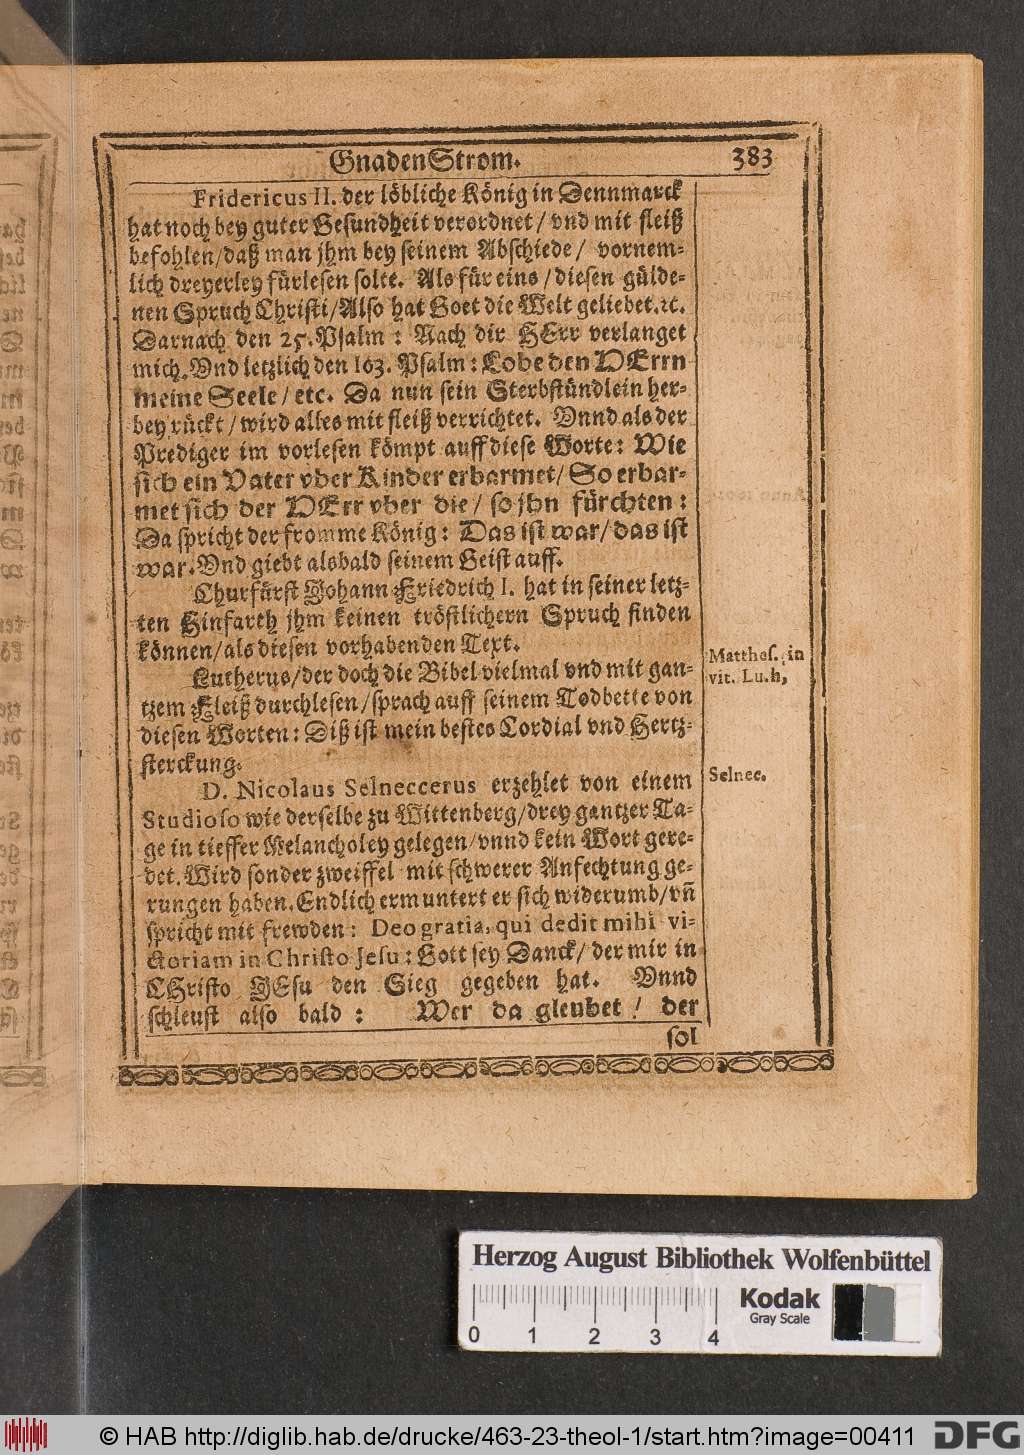 GnadenStrom. 383
Fridericus II. der löbliche König in Dennmarck
hat noch bey guter Gesundheit verordnet / vnd mit fleiß
befohlen/daß man jhm bey seinem Abschiede / vornem-
lich dreyerley fürlesen solte. Als für eins / diesen gülde-
nen Spruch Christi/Also hat Gott die Welt geliebet.ꝛc.
Darnach den 25. Psalm : Nach dir HErr verlanget
mich. Vnd letzlich den 103. Psalm : Lobe den HErrn
meine Seele / etc. Da nun sein Sterbstündlein her-
bey rückt / wird alles mit fleiß verrichtet. Vnnd als der
Prediger im vorlesen kömpt auff diese Worte: Wie
sich ein Vater vber Kinder erbarmet/ So erbar-
met sich der HErr vber die / so jhn fürchten :
Da spricht der fromme König : Das ist war/ das ist
war. Vnd giebt alsbald seinem Geist auff.
Churfürst Johann Friedrich I. hat in seiner letz-
ten Hinfarth jhm keinen tröstlichern Spruch finden
können/als diesen vorhabenden Text.
Lutherus/der doch die Bibel vielmal vnd mit gan-
tzem Fleiß durchlesen/sprach auff seinem Todbette von
diesen Worten: Diß ist mein bestes Cordial vnd Hertz-
sterckung.
Matthes. in
vit. Luth,
D. Nicolaus Selneccerus erzehlet von einem
Studioso wie derselbe zu Wittenberg/drey gantzer Ta-
ge in tieffer Melancholey gelegen/vnnd kein Wort gere-
det. Wird sonder zweiffel mit schwerer Anfechtung ge-
rungen haben. Endlich ermuntert er sich widerumb/vñ
spricht mit frewden : Deo gratia, qui dedit mihi vi-
ctoriam in Christo Jesu : Gott sey Danck/ der mir in
CHristo JEsu den Sieg gegeben hat. Vnnd
schleust also bald : Wer da gleubet / der
Selnec.
sol
Herzog August Bibliothek Wolfenbüttel
0 1 2 3 4
Kodak
Gray Scale
© HAB http://diglib.hab.de/drucke/463-23-theol-1/start.htm?image=00411
DFG